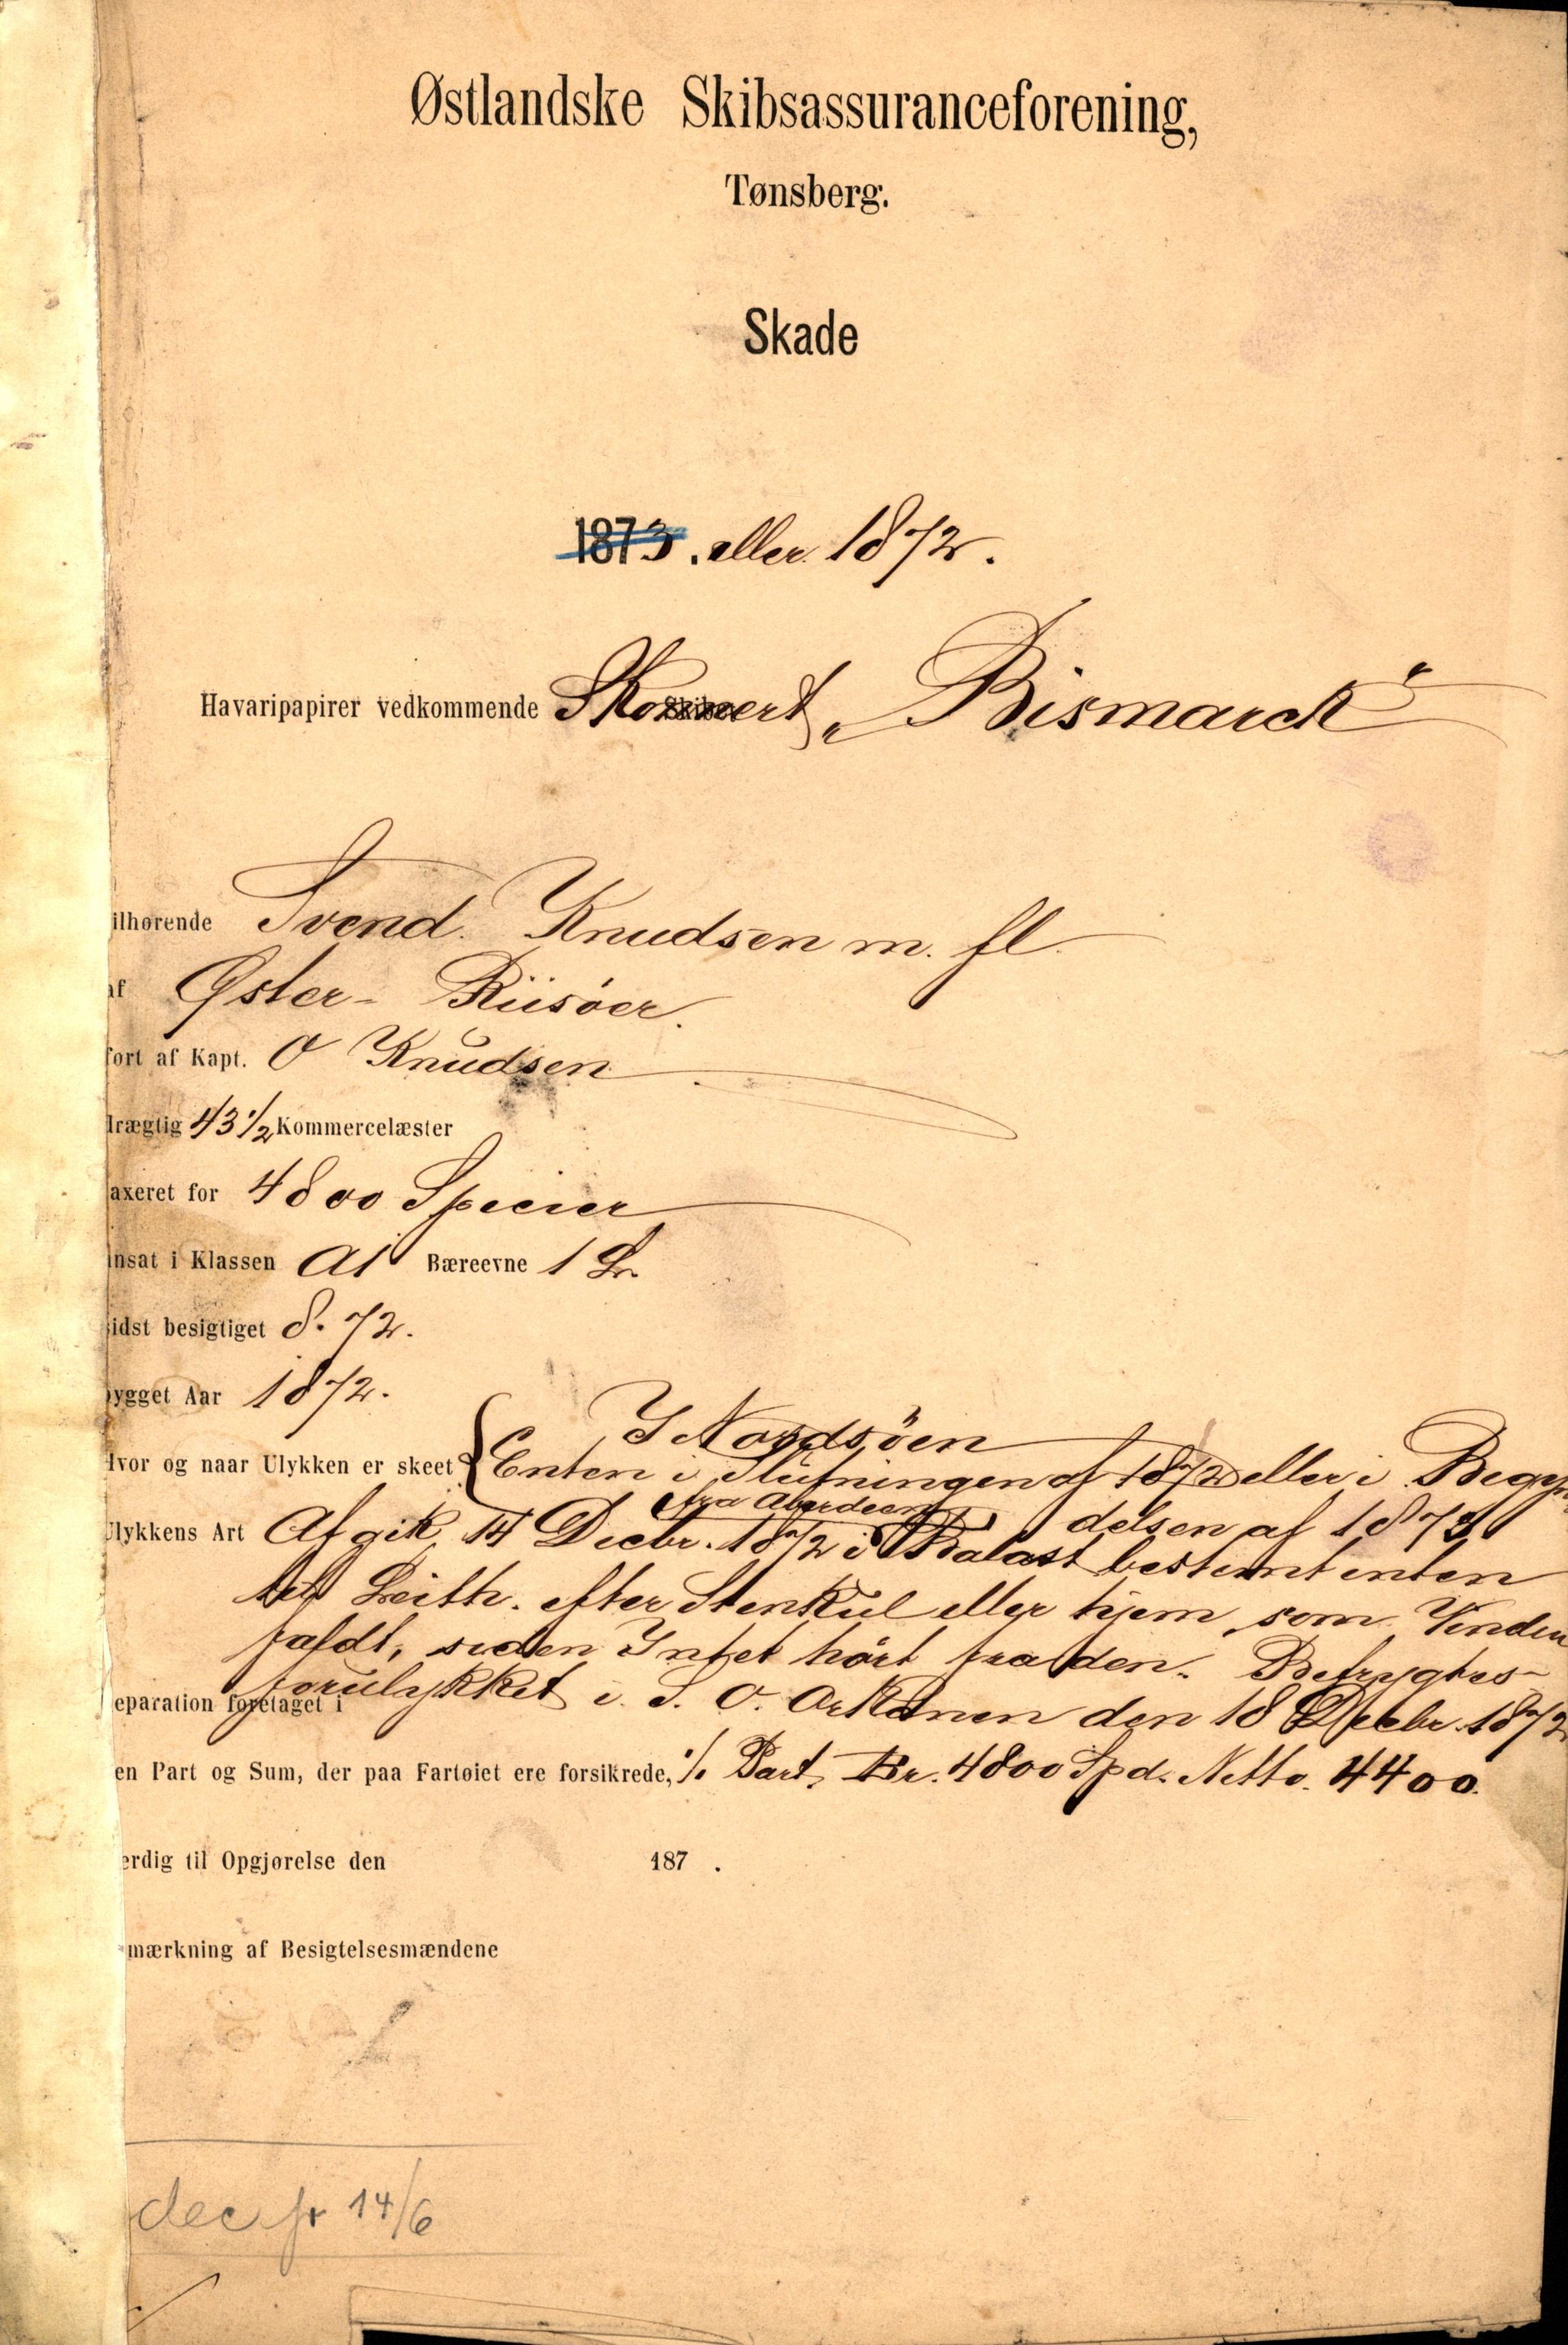 Østlandske Skibsassuranceforening,
Tønsberg.
Skade
1873. eller 1872.
Havaripapirer vedkommende Skonnert „Bismarck"
ilhørende Svend Knudsen m. fl.
af Øster-Riisöer.
ført af Kapt. O Knudsen
drægtig 43 1/2 Kommercelæster
axeret for 4800 Specier
insat i Klassen A1 Bæreevne 1 Pr.
sidst besigtiget 8. 72.
bygget Aar 1872.
I Nordsöen
Hvor og naar Ulykken er skeet Enten i Slutningen af 1872 eller i Begyn
delsen af 1873
fra Aberdeen
Ulykkens Art Afgik 14 Decbr. 1872 i Balast bestemt enten
til Leith. efter Stenkul eller hjem, som Vinden
faldt, siden Intet hört fra den. Befrygtes
forulykket i S. O. Orkanen den 18 Decbr 1872
eparation foretaget i
en Part og Sum, der paa Fartøiet ere forsikrede, 1/1 Part, Br. 4800 Spd. Netto. 4400.
erdig til Opgjørelse den 187 .
mærkning af Besigtelsesmændene
dec fr 14/6